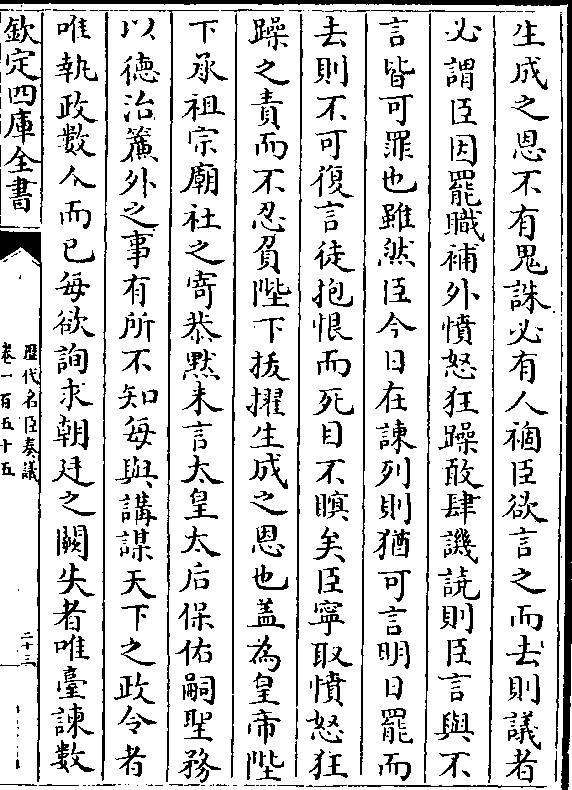 生成之恩不有鬼誅必有人禍臣欲言之而去則議者
必謂臣因罷職補外憤怒狂躁敢肆譏謗則臣言與不
言皆可罪也雖然臣今日在諫列則猶可言明日罷而
去則不可復言徒抱恨而死目不瞑矣臣寧取憤怒狂
躁之責而不忍負陛下拔擢生成之恩也蓋為皇帝陛
下承祖宗廟社之寄恭默未言太皇太后保佑嗣聖務
以德治簾外之事有所不知每與講謀天下之政令者
唯執政數人而已每欲詢求朝廷之闕失者唯臺諫數
欽定四庫全書
歷代名臣奏議
卷一百五十五
二十三